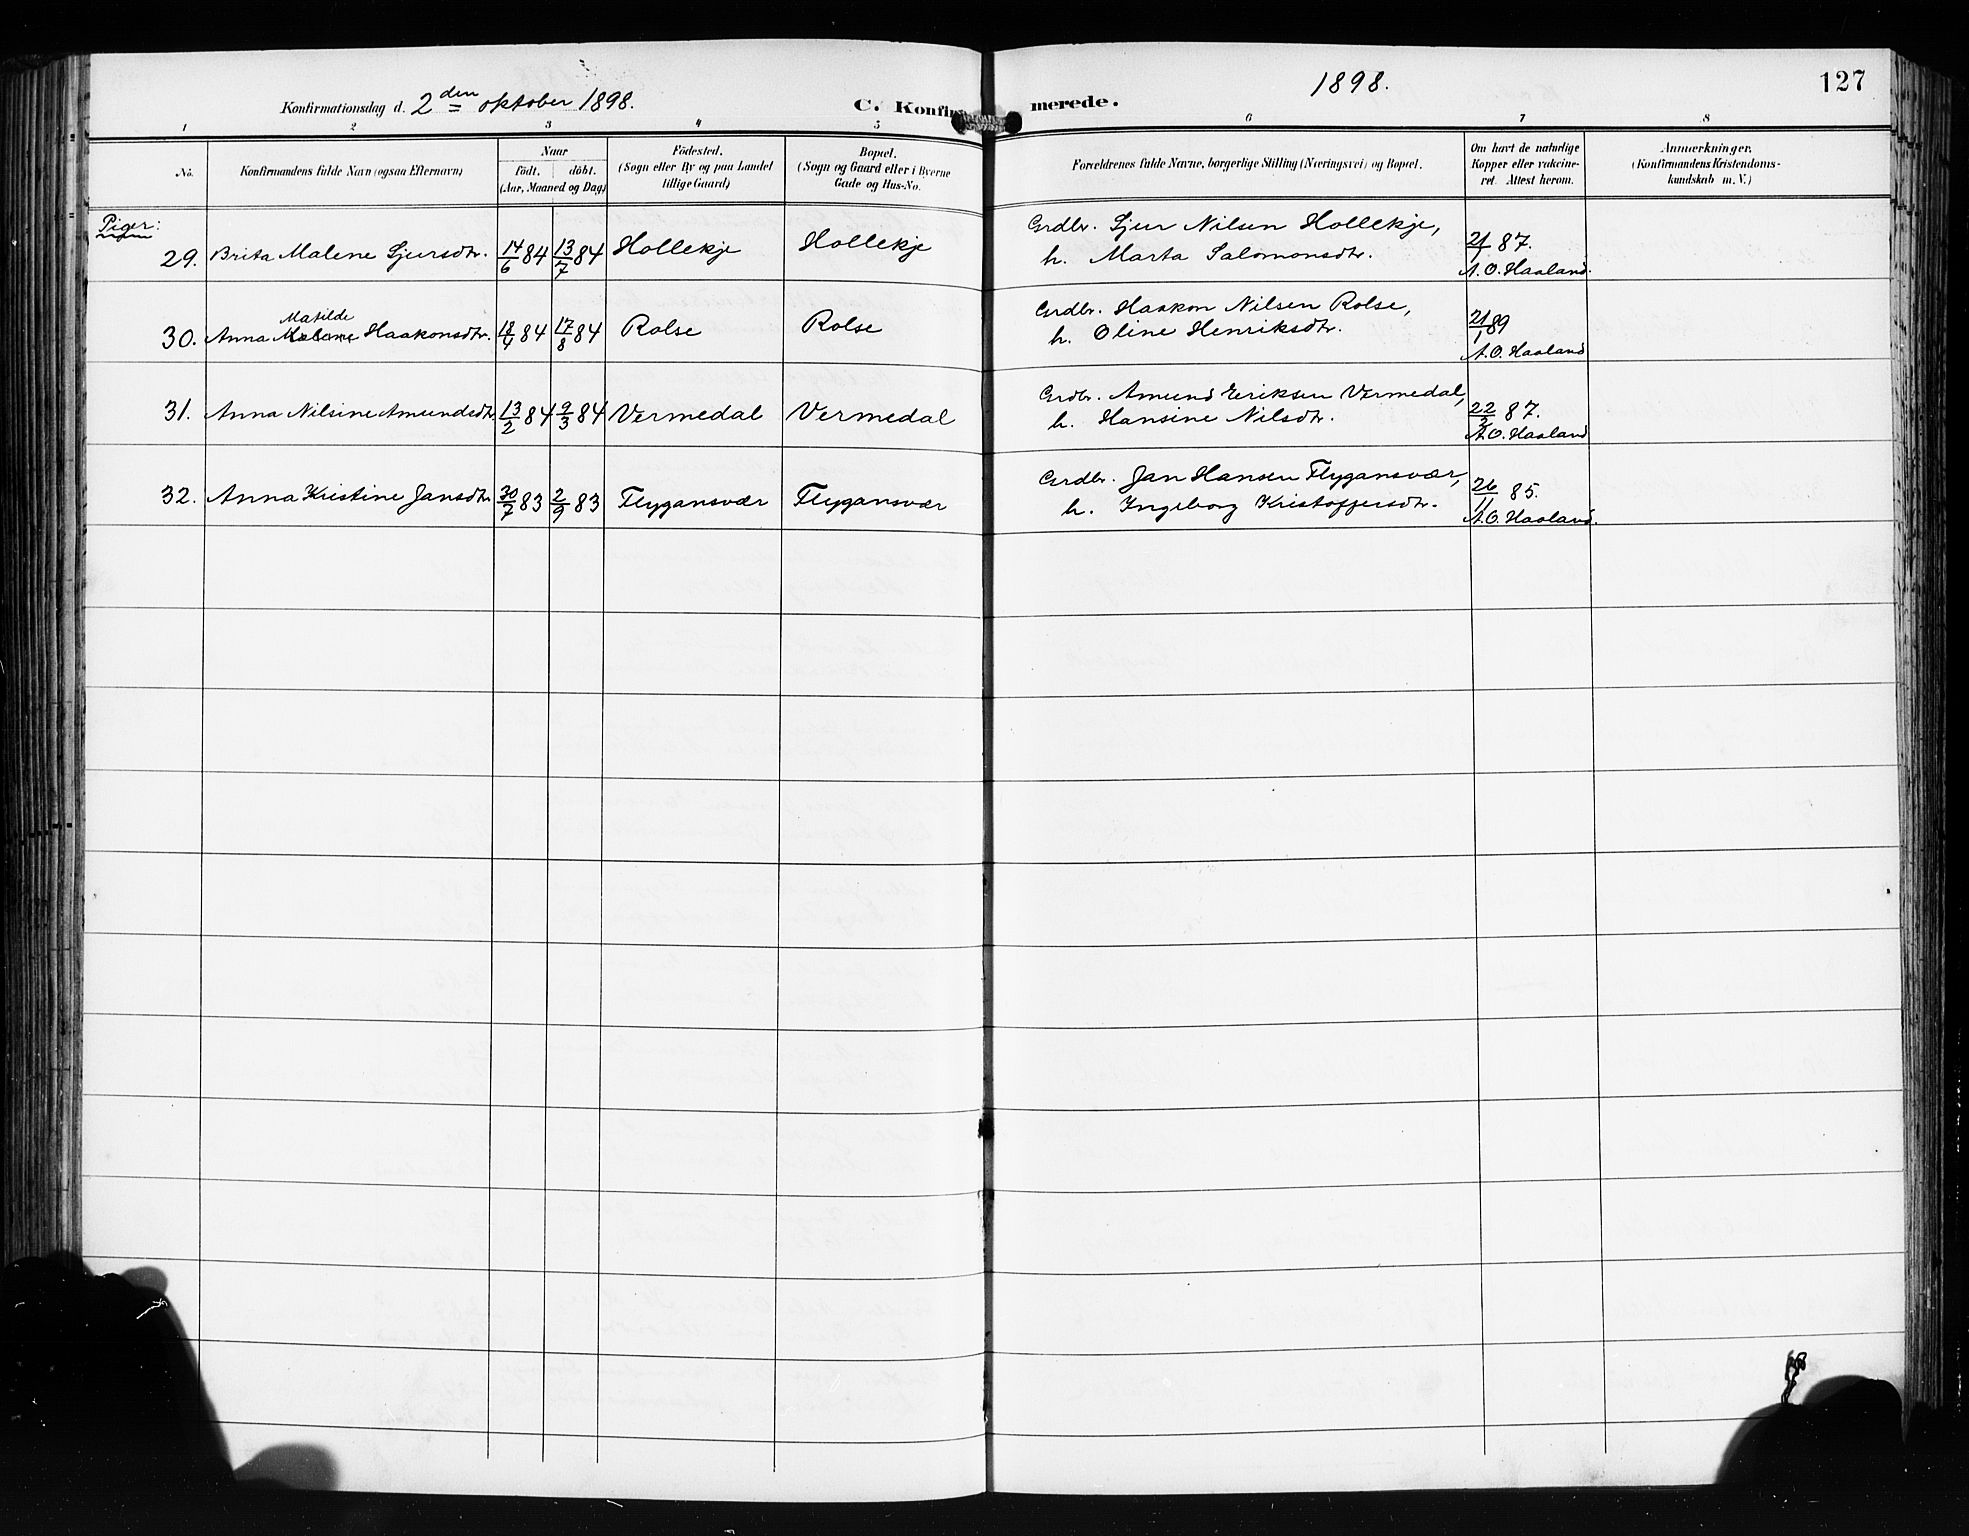 127
1898.
Konfirmationsdag d. 2den oktober 1898.
C. Konfirmerede.
1 2 3 4 5 6 7 8
No.
Konfirmandens fulde Navn (ogsaa Efternavn)
Naar
födt. döbt.
(Aar, Maaned og Dag)
Födested.
(Sogn eller By og paa Landet
tillige Gaard)
Bopæl.
(Sogn og Gaard eller i Byerne
Gade og Hus-No.
Forældrenes fulde Navne, borgerlige Stilling (Næringsvei) og Bopæl.
Om havt de naturlige
Kopper eller vakcine-
ret. Attest herom.
Anmærkninger,
(Konfirmandens Kristendoms-
kundskab m. V.)
Piger:
29. Brita Malene Sjursdtr. 14/6 84 13/7 84 Hollekje Hollekje
Grdbr. Sjur Nilsen Hollekje,
h. Marta Salomonsdtr.
21/1 87.
A. O. Haaland.
Matilde
30. Anna Malene Haakonsdtr. 18/4 84 17/8 84 Rolse Rolse
Grdbr. Haakon Nilsen Rolse,
h. Oline Henriksdtr.
21/1 89
A. O. Haaland
31. Anna Nilsine Amundsdtr 13/2 84 9/3 84 Vermedal Vermedal
Grdbr. Amund Eriksen Vermedal,
h. Hansine Nilsdtr.
22/3 87.
A. O. Haaland
32. Anna Kristine Jansdtr 30/7 83 2/9 83 Flygansvær Flygansvær
Grdbr. Jan Hansen Flygansvær,
h. Ingeborg Kristoffersdtr.
26/11 85.
A. O. Haaland.